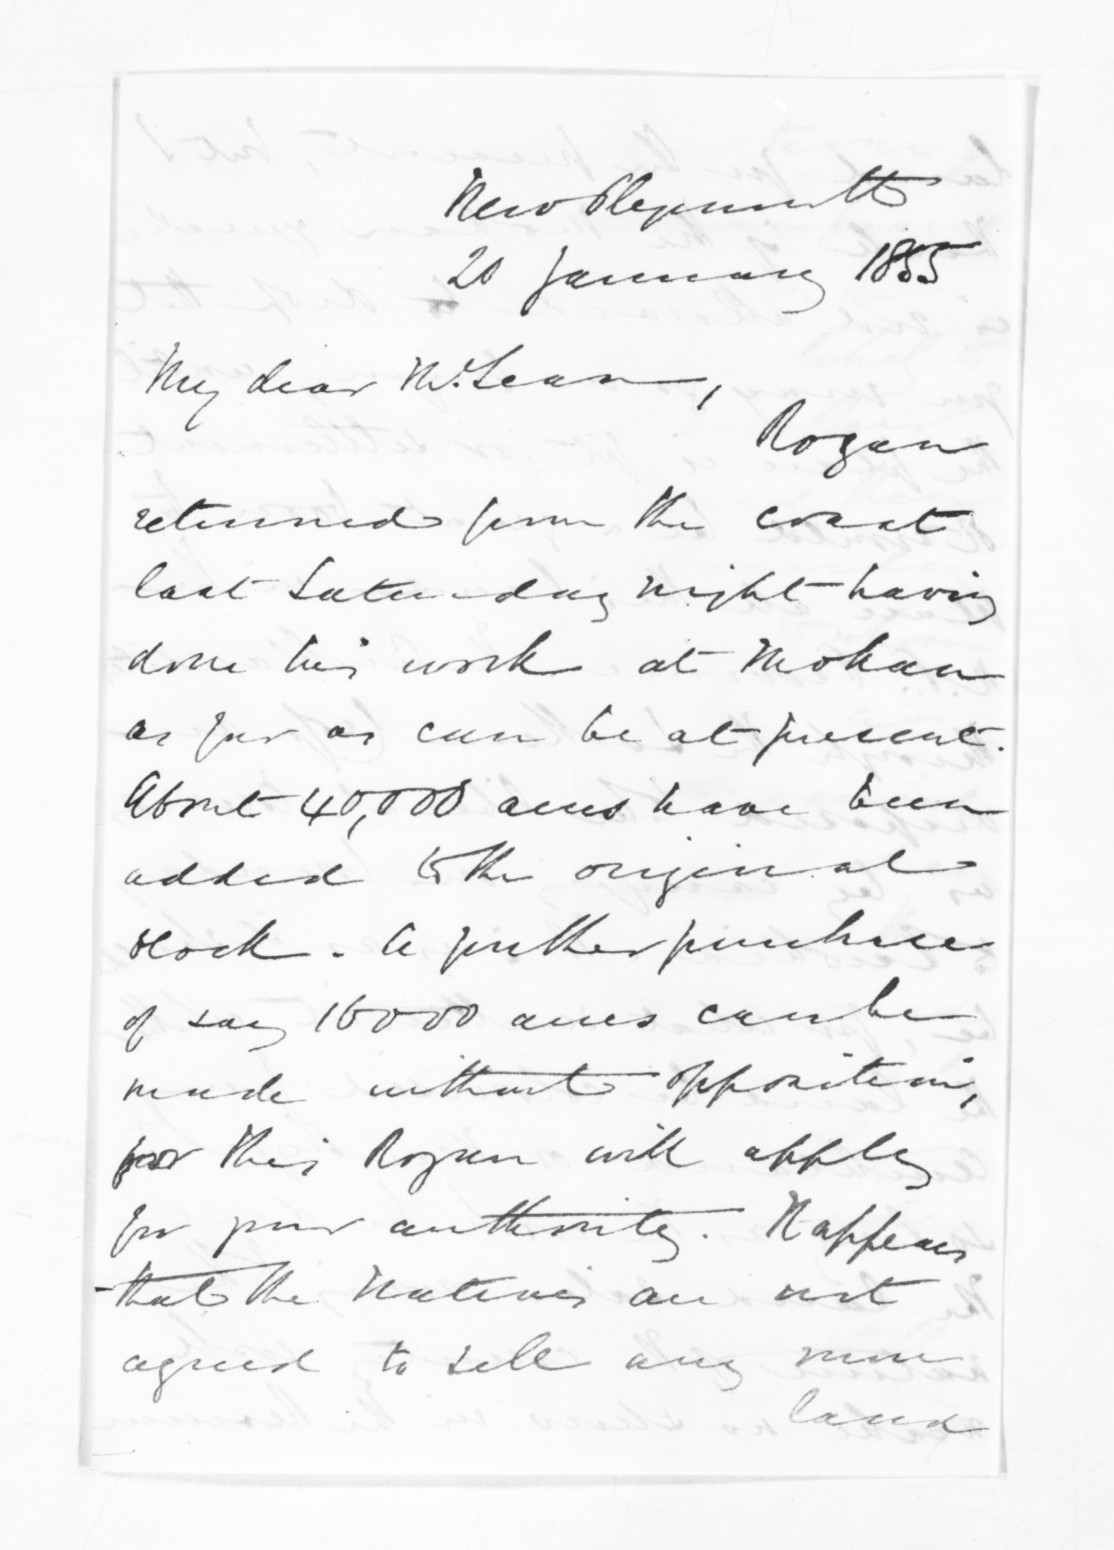 New Plymouth
20 January 1855
My dear McLean,
Rogan
returned from the coast
last Saturday night having
done his work at Mokau
as far as can be at present.
About 40,000 acres have been
added to the original
block. A further purchase
of say 16000 acres can be
made without opposition,
for this Rogan will apply
for your authority. It appears
that the Natives are not
agreed to sell any more
land